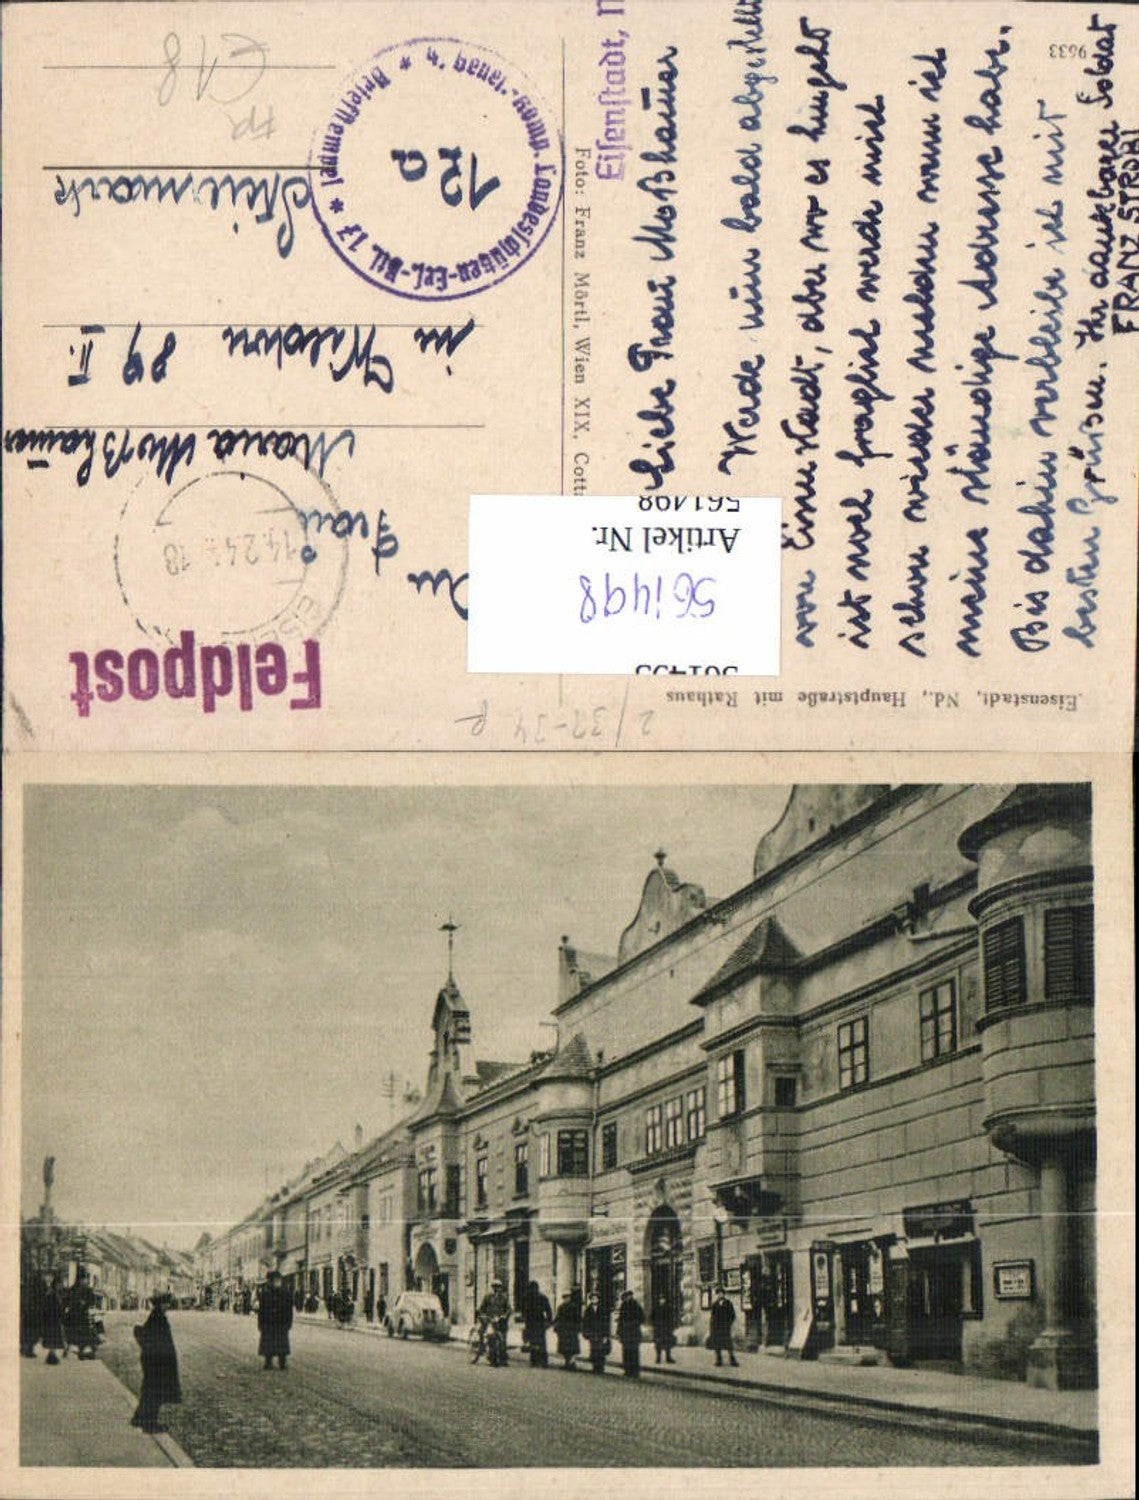 Eisenstadt, Nd., Hauptstraße mit Rathaus
9633
Eisenstadt,
Liebe Frau Moßhauer
Werde nun bald abgestellt
von Eisenstadt, aber wo es hingeht
ist noch fraglich werde mich
schon wieder melden wann ich
meine ständige Adresse habe.
Bis dahin verbleibe ich mit
besten Grüßen. Ihr dankbarer Soldat
FRANZ STROBL
Foto: Franz Mörtl, Wien XIX,
Feldpost
14.2.4 18
An
Frau
Maria Moßhauer
in Wildon 89 II.
Steiermark
Landesschützen-Ers.-Btl. 17 * Briefstempel *
12a
€18
FP
2/32-34 P
561498
Artikel Nr.
561498
561455